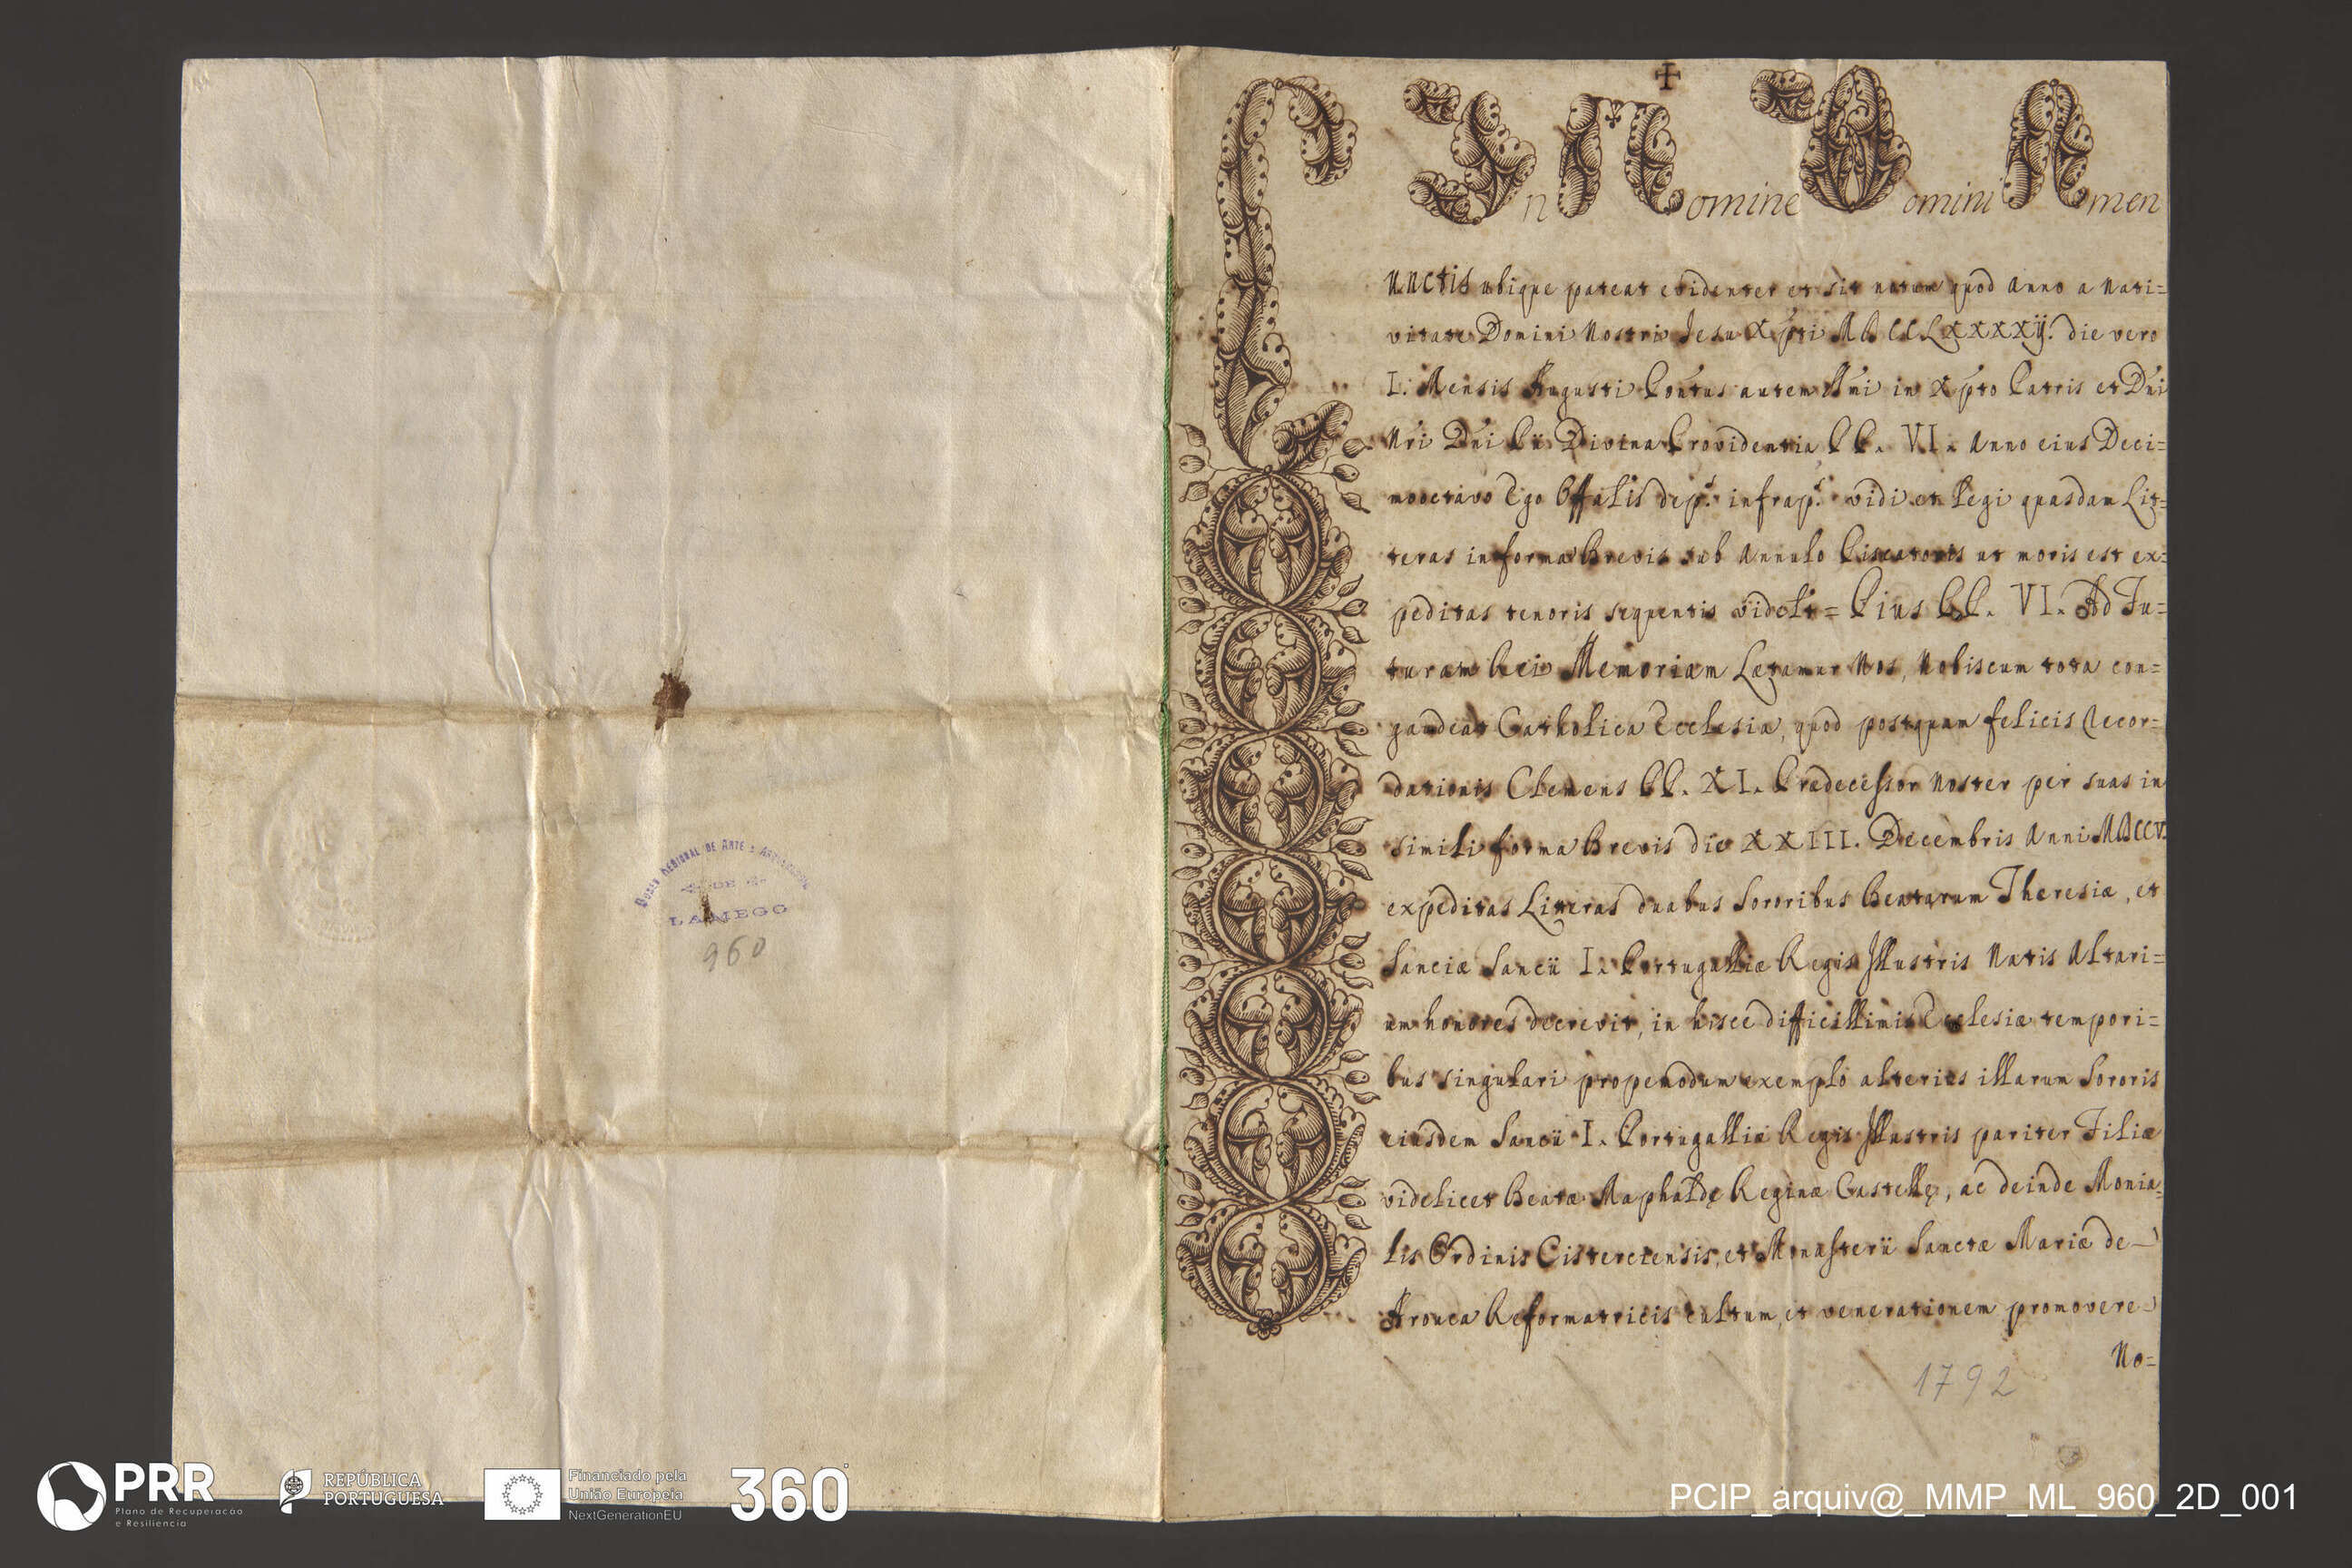 MUSEU REGIONAL DE ARTE E ARQUEOLOGIA
DE
LAMEGO
960
In Nomine Domini Amen
Cunctis ubique pateat evidenter et sit notum quod Anno a Nati=
vitate Domini Nostri Jesu Xpti MDCCLXXXXij. die vero
I. Mensis Augusti Pontus autem SSmi in Xpto Patris et Dni
Nri Dni Pii Divina Providentia PP. VI. Anno eius Deci=
mooctavo Ego Offalis dep. infrap. vidi et legi quasdam Lit=
teras in forma Brevis sub Annulo Piscatoris ut moris est ex=
peditas tenoris sequentis videlt = Pius PP. VI. Ad Fu=
turam Rei Memoriam Lætamur Nos, Nobiscum tota con=
gaudeat Catholica Ecclesia, quod postquam felicis Recor=
dationis Clemens PP. XI. Prædecessor Noster per suas in
simili forma Brevis die XXIII. Decembris Anni MDCCV.
expeditas Litteras duabus Sororibus Beatarum Theresiæ, et
Sanciæ Sancii I. Portugalliæ Regis Illustris Natis Altari=
um honores decrevit, in hisce difficillimis Ecclesiæ tempori=
bus singulari propemodum exemplo alterius illarum Sororis
eiusdem Sancii I. Portugalliæ Regis Illustris pariter Filiæ
videlicet Beatæ Maphaldę Reginæ Castellę, ac deinde Monia=
lis Ordinis Cisterciensis, et Monasterii Sanctæ Mariæ de
Arouca Reformatricis cultum, et venerationem promovere
No=
1792
PRR
Plano de Recuperação
e Resiliência
REPÚBLICA
PORTUGUESA
Financiado pela
União Europeia
NextGenerationEU
360°
PCIP_arquiv@_MMP_ML_960_2D_001